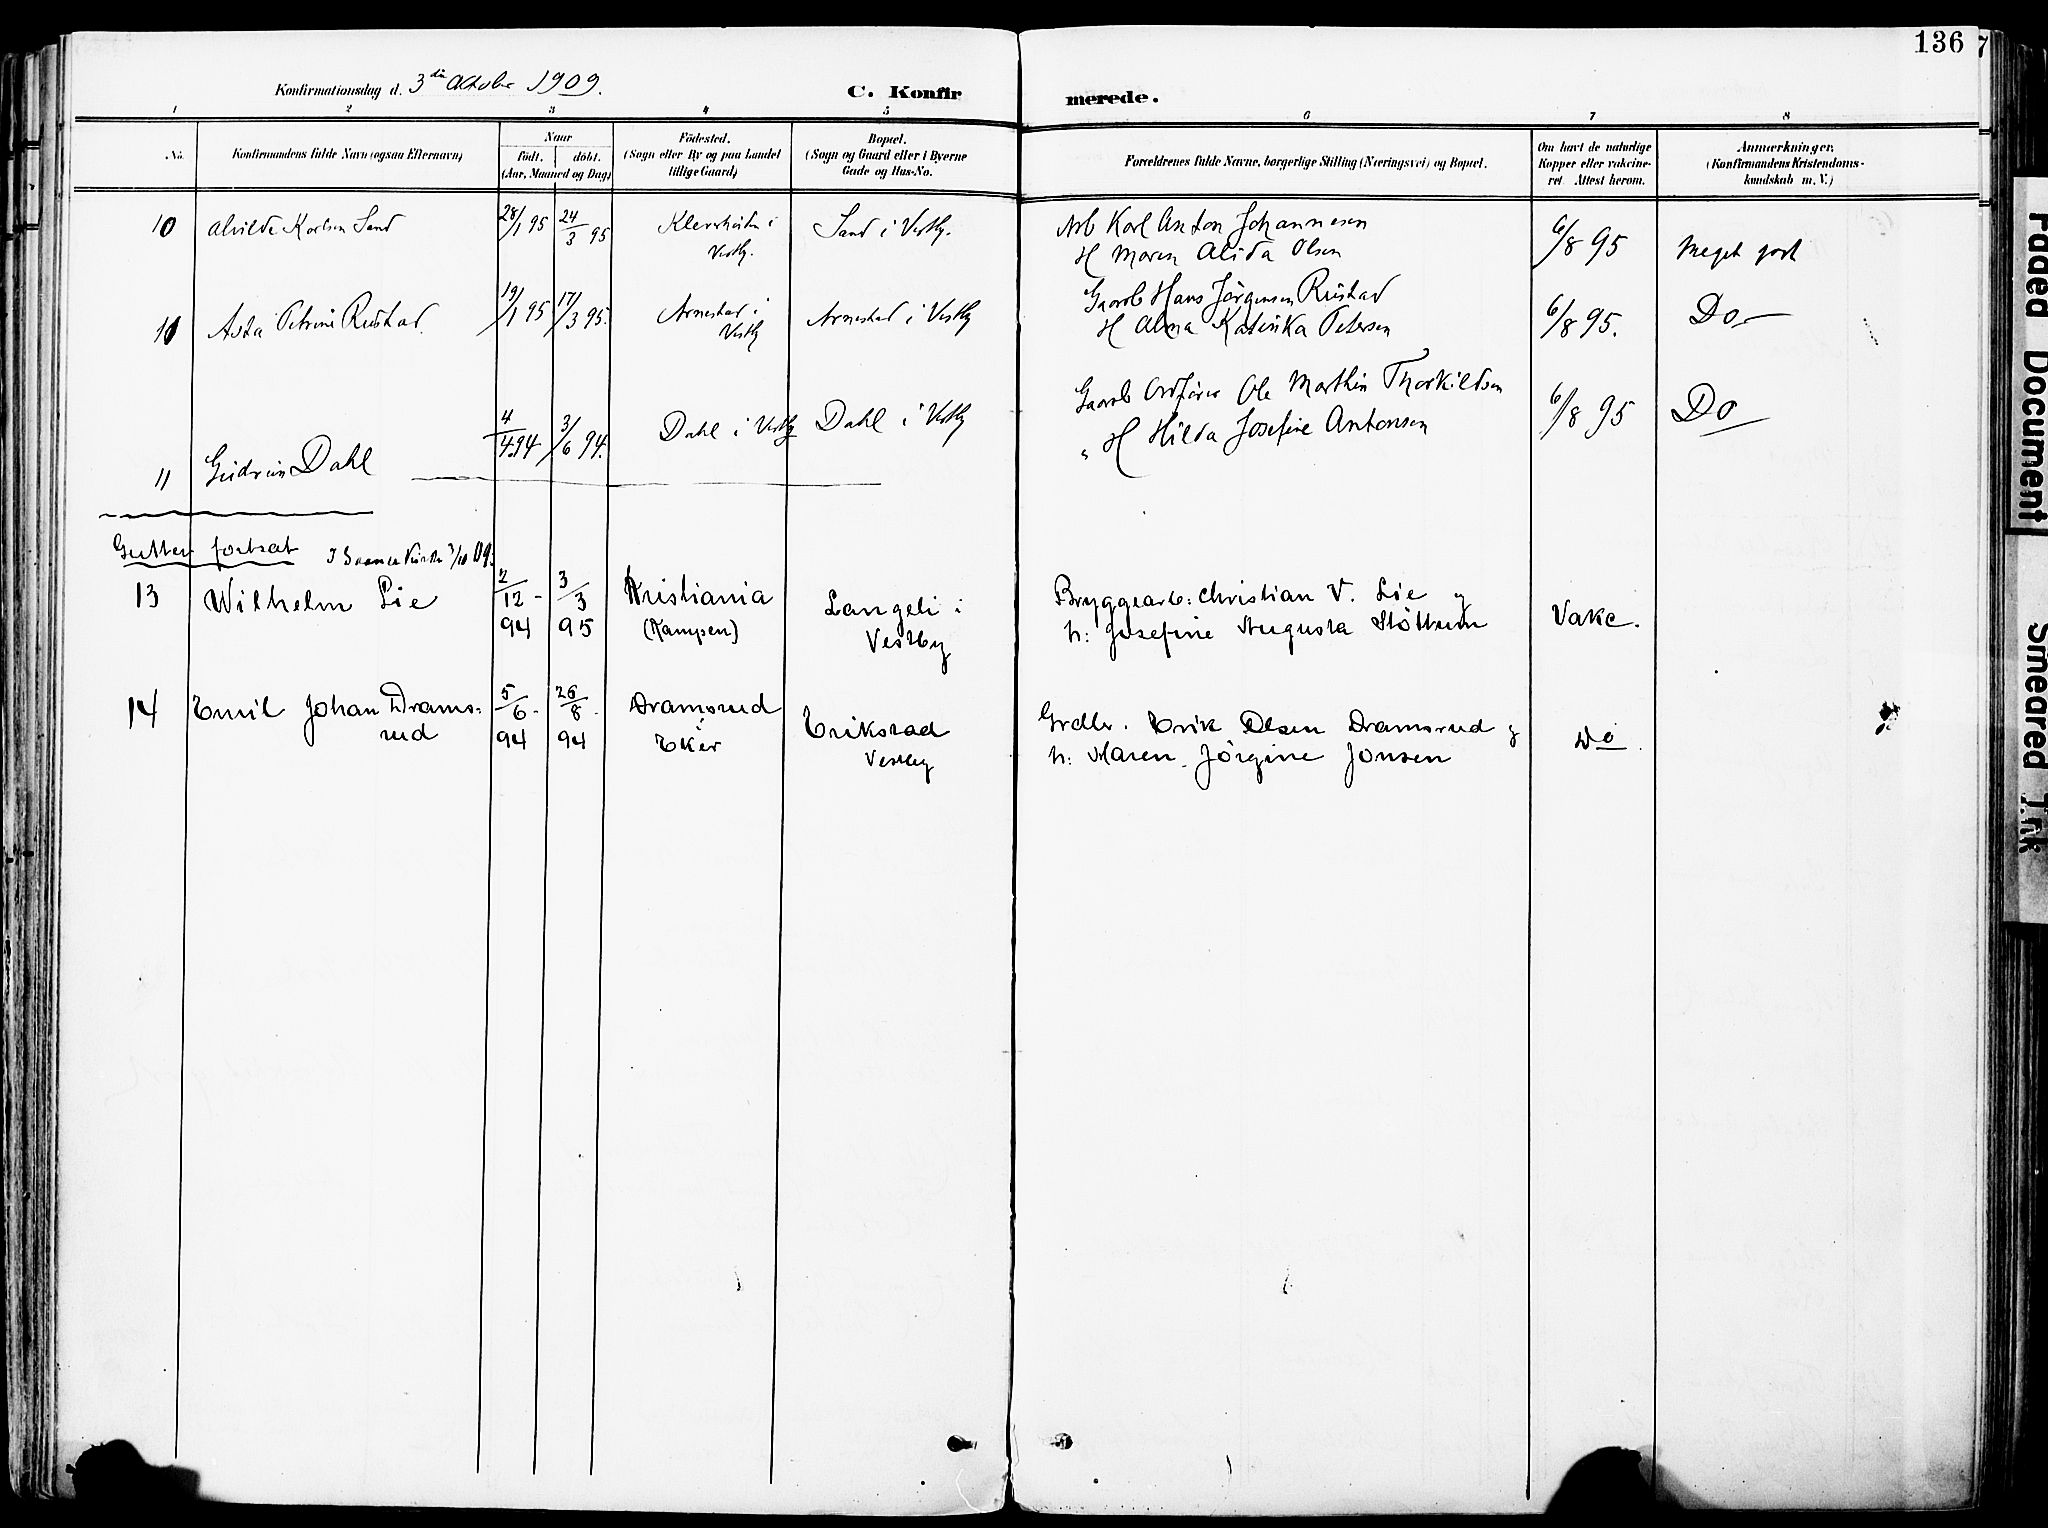 136
7
Konfirmationsdag d. 3die Oktober 1909.
C. Konfirmerede.
1 2 3 4 5 6 7 8
No.
Konfirmandens fulde Navn (ogsaa Efternavn)
Naar
født. døbt.
(Aar, Maaned og Dag)
Fødested.
(Sogn eller By og paa Landet
tillige Gaard)
Bopæl.
(Sogn og Gaard eller i Byerne
Gade og Hus-No.
Forældrenes fulde Navne, borgerlige Stilling (Næringsvei) og Bopæl.
Om havt de naturlige
Kopper eller vakcine-
ret Attest herom.
Anmærkninger.
(Konfirmandens Kristendoms-
kundskab m. V.)
10 Alvilde Karlsen Sand 28/1 95 24/3 95 i Vestby. Sand i Vestby. Arb Karl Anton Johannesen
H Maren Alida Olsen 6/8 95 Meget godt
10 Asta Petrine Rustad. 19/1 95 17/3 95. Arnestad i
Vestby Arnestad i Vestby Gaarb Hans Jørgensen Rustad
H Alma Katinka Petersen 6/8 95. Do
11 Gudrun Dahl 4/4 94 3/6 94. Dahl i Vestby Dahl i Vestby Gaarb Ordfører Ole Marthin Thorkildsen
" H Hilda Josefine Antonsen 6/8 95 Do
Gutter fortsat I Kirke 3/10 09.
13 Wilhelm Lie 2/12 - 94 3/3 95 Kristiania
(Kampen) Langeli i
Vestby Bryggearb: Christian V. Lie og
h: Josefine Augusta Støttum Vakc.
14 Emil Johan Drams-
rud 5/6 - 94 26/8 - 94 Dramsrud
i
Eker Eriksrad
Vestby Grdbr. Erik Olsen Dramsrud og
h: Maren Jørgine Jonsen Do
Faded Document
Smeared Ink